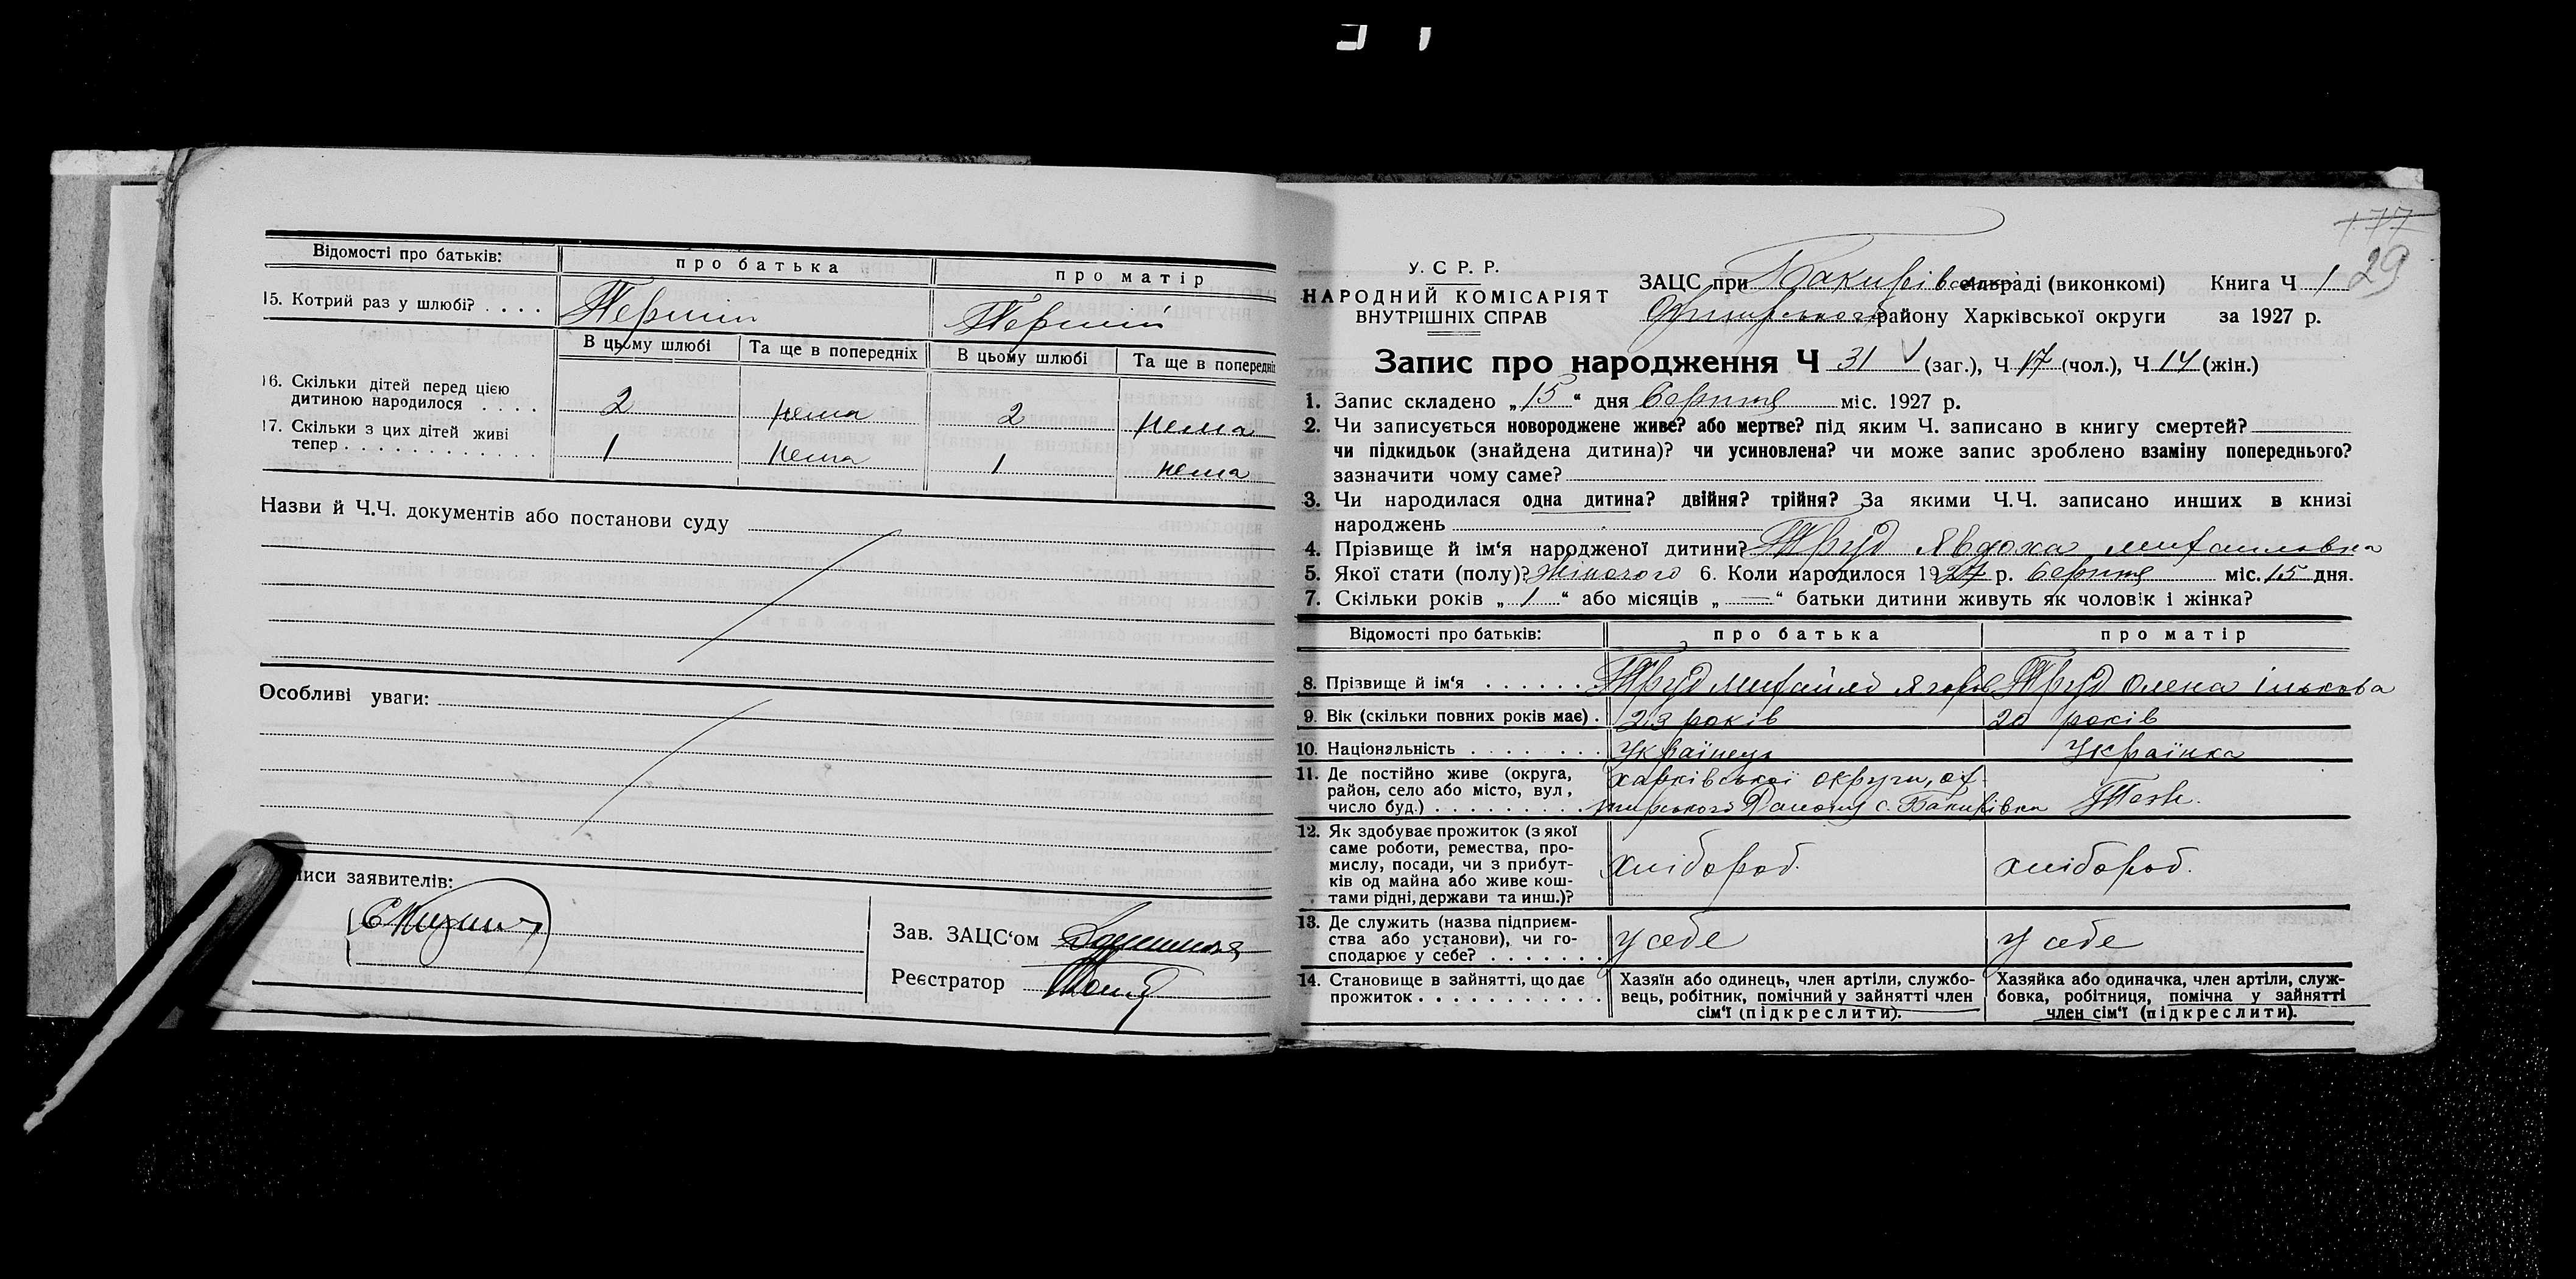 Відомості про батьків: про батька про матір
15. Котрий раз у шлюбі? . . . . Перший Перший
В цьому шлюбі Та ще в попередніх В цьому шлюбі Та ще в попередніх
16. Скільки дітей перед цією
дитиною народилося . . . . 2 нема 2 нема
17. Скільки з цих дітей живі
тепер . . . . . . . . . . . . 1 нема 1 нема
Назви й Ч.Ч. документів або постанови суду
Особливі уваги:
писи заявителів:
Зав. ЗАЦС‘ом
Реєстратор
177
29
У. С Р. Р.
НАРОДНИЙ КОМІСАРІЯТ
ВНУТРІШНІХ СПРАВ
ЗАЦС при Бакирівс сельраді (виконкомі) Книга Ч 1
Охтирського району Харківської округи за 1927 р.
Запис про народження Ч 31 (заг.), Ч 17 (чол.), Ч 14 (жін.)
1. Запис складено „15“ дня серпня міс. 1927 р.
2. Чи записується новороджене живе? або мертве? під яким Ч. записано в книгу смертей?
чи підкидьок (знайдена дитина)? чи усиновлена? чи може запис зроблено взаміну попереднього?
зазначити чому саме?
3. Чи народилася одна дитина? двійня? трійня? За якими Ч.Ч. записано инших в книзі
народжень
4. Прізвище й ім‘я народженої дитини? Труд Явдоха михаиловна
5. Якої стати (полу)? жіночого 6. Коли народилося 1927 р. серпня міс. 15 дня.
7. Скільки років „1“ або місяців „—“ батьки дитини живуть як чоловік і жінка?
Відомості про батьків: про батька про матір
8. Прізвище й ім‘я . . . . . . Труд михайло Труд Олена ількова
9. Вік (скільки повних років має) . 23 років 20 років
10. Національність . . . . . . . Українець Українка
11. Де постійно живе (округа, харківської округи, ох-
район, село або місто, вул,
число буд.) . . . . . . . . . тирського Району с. Бакирівка Теж.
12. Як здобуває прожиток (з якої
саме роботи, ремества, про-
мислу, посади, чи з прибут- хлібороб. хлібороб.
ків од майна або живе кош-
тами рідні, держави та инш.)?
13. Де служить (назва підприєм-
ства або установи), чи го- у себе у себе
сподарює у себе? . . . . . . .
14. Становище в зайнятті, що дає Хазяїн або одинець, член артіли, службо- Хазяйка або одиначка, член артіли, служ-
прожиток . . . . . . . . . . . вець, робітник, помічний у зайнятті член бовка, робітниця, помічна у зайнятті
сім‘ї (підкреслити). член сім‘ї (підкреслити).